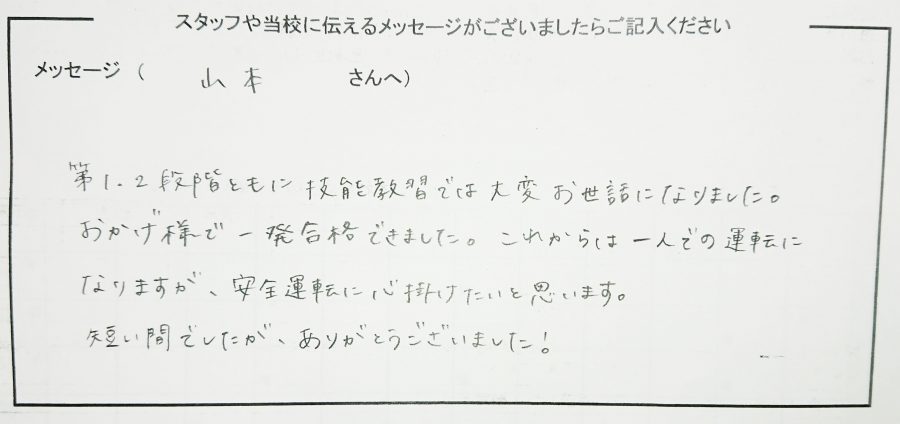 スタッフや当校に伝えるメッセージがございましたらご記入ください
メッセージ（ 山本 さんへ）
第1.2段階ともに技能教習では大変お世話になりました。
おかげ様で一発合格できました。これからは一人での運転に
なりますが、安全運転に心掛けたいと思います。
短い間でしたが、ありがとうございました！